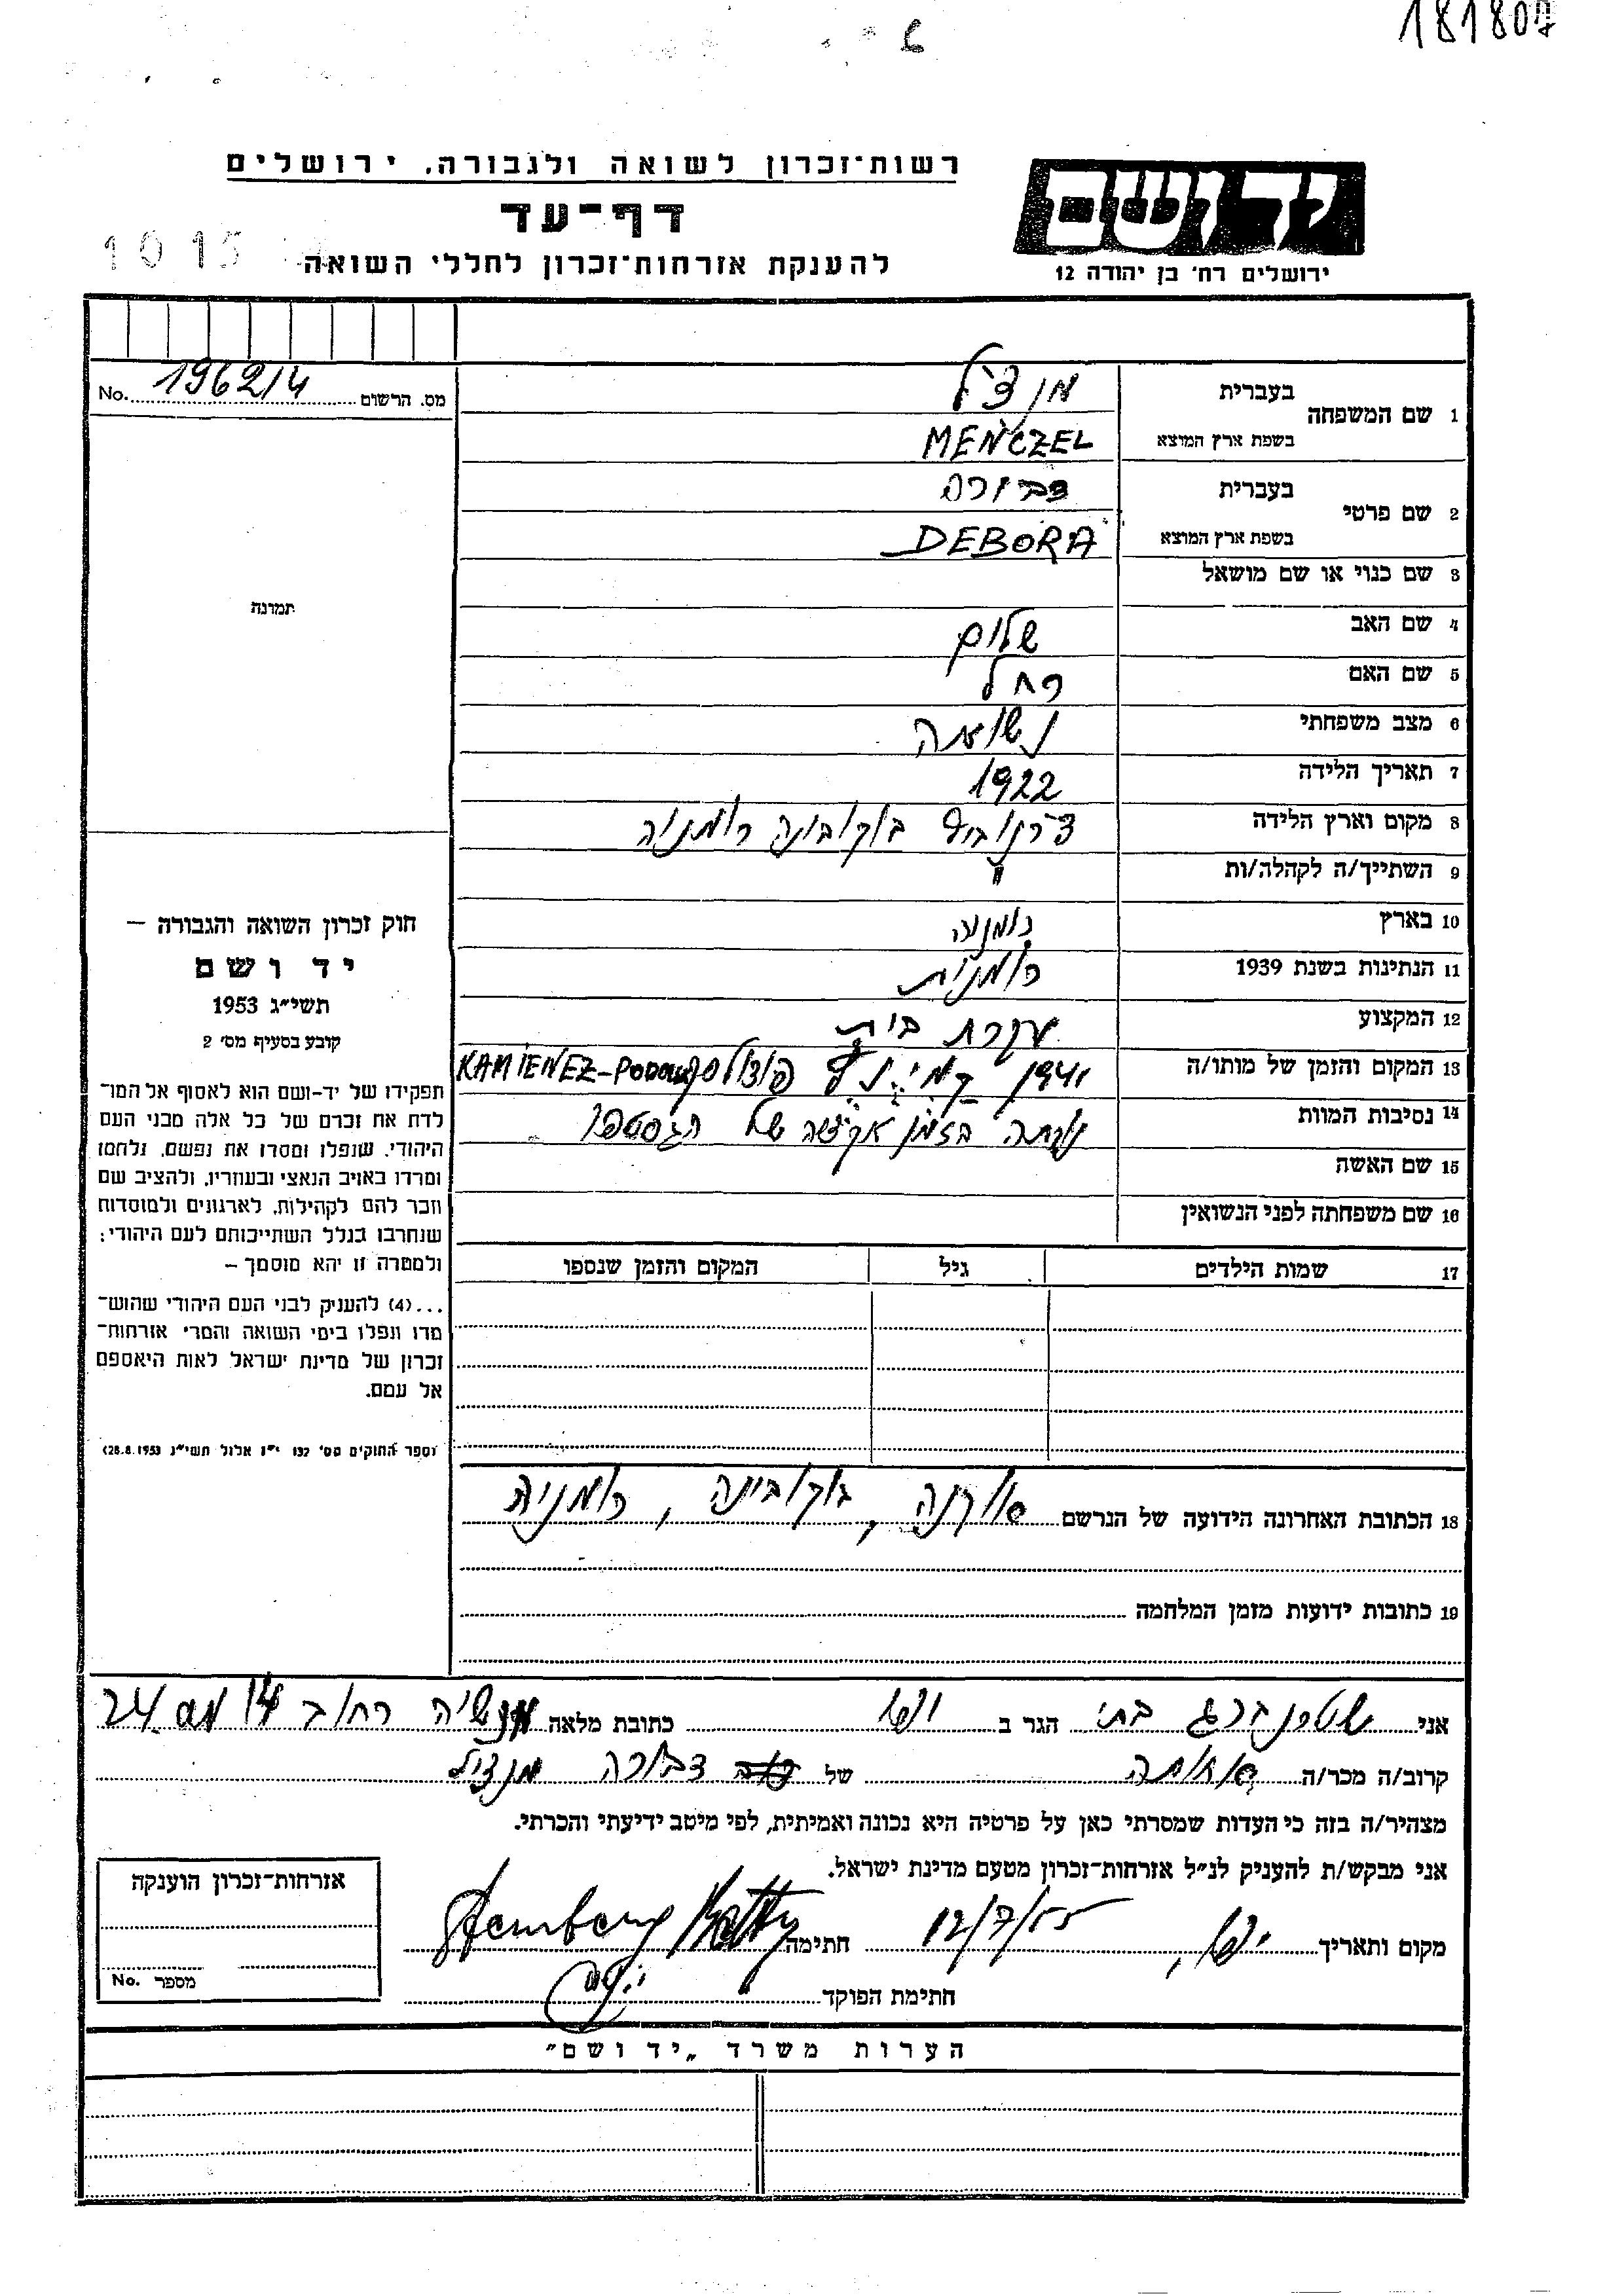 181807
רשות־זכרון לשואה ולגבורה, ירושלים
דף־עד
להענקת אזרחות־זכרון לחללי השואה
1015
יד ושם
ירושלים רח' בן יהודה 12
No. 196214 מס. הרשום
1 שם המשפחה בעברית מנצ'ל
בשפת ארץ המוצא MENCZEL
2 שם פרטי בעברית דבורה
בשפת ארץ המוצא DEBORA
3 שם כנוי או שם מושאל
4 שם האב שלום
5 שם האם רחל
6 מצב משפחתי נשואה
7 תאריך הלידה 1922
8 מקום וארץ הלידה צ'רנוביץ בוקובינה רומניה
9 השתייך/ה לקהלה/ות "
10 בארץ רומניה
11 הנתינות בשנת 1939 רומנית
12 המקצוע עקרת בית
13 המקום והזמן של מותו/ה 1941 קמיניץ פודולסק KAMIENEZ-PODOLSK
14 נסיבות המוות נורתה בזמן אקציה של הגסטפו
15 שם האשה
16 שם משפחתה לפני הנשואין
17 שמות הילדים גיל המקום והזמן שנספו
תמונה
חוק זכרון השואה והגבורה –
יד ושם
תשי"ג 1953
קובע בסעיף מס' 2
תפקידו של יד-ושם הוא לאסוף אל המו־
לדת את זכרם של כל אלה מבני העם
היהודי, שנפלו ומסרו את נפשם, נלחמו
ומרדו באויב הנאצי ובעוזריו, ולהציב שם
וזכר להם לקהילות, לארגונים ולמוסדות
שנחרבו בגלל השתייכותם לעם היהודי;
ולמטרה זו יהא מוסמך –
...(4) להעניק לבני העם היהודי שהוש־
מדו ונפלו בימי השואה והמרי אזרחות־
זכרון של מדינת ישראל לאות היאספם
אל עמם.
(ספר החוקים מס' 132 י"ז אלול תשי"ג 28.8.1953)
18 הכתובת האחרונה הידועה של הנרשם בוקובינה, רומניה
19 כתובות ידועות מזמן המלחמה
אני שטרנברג בתי הגר ב יפו כתובת מלאה מנשיה רחוב 14 מס 24
קרוב/ה מכר/ה אחותה של דבורה מנצ'ל
מצהיר/ה בזה כי העדות שמסרתי כאן על פרטיה היא נכונה ואמיתית, לפי מיטב ידיעתי והכרתי.
אני מבקש/ת להעניק לנ"ל אזרחות־זכרון מטעם מדינת ישראל.
מקום ותאריך יפו, 12/7/55 חתימה Sternberg Betty
חתימת הפוקד
אזרחות־זכרון הוענקה
מספר No.
הערות משרד „יד ושם"